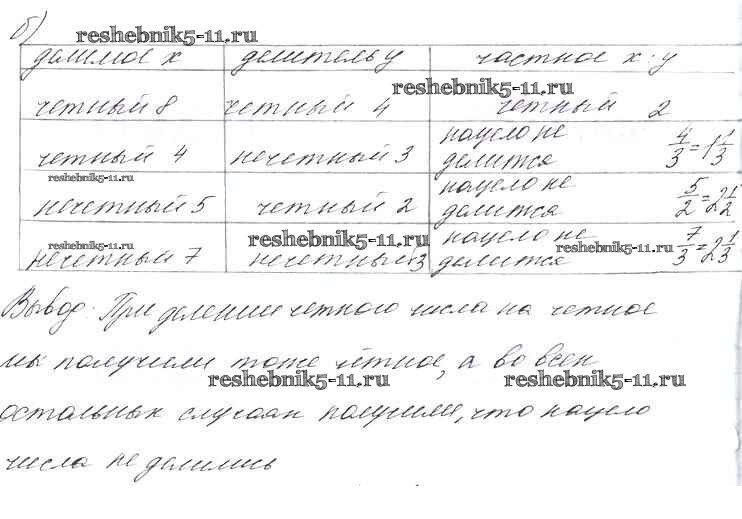 б)
reshebnik5-11.ru
делимое x делитель y частное x : y
reshebnik5-11.ru
четный 8 четный 4 четный 2
четный 4 нечетный 3 нацело не делится 4/3 = 1 1/3
reshebnik5-11.ru
нечетный 5 четный 2 нацело не делится 5/2 = 2 1/2
reshebnik5-11.ru reshebnik5-11.ru reshebnik5-11.ru
нечетный 7 нечетный 3 нацело не делится 7/3 = 2 1/3
Вывод: При делении четного числа на четное
мы получили тоже чётное, а во всех
reshebnik5-11.ru reshebnik5-11.ru
остальных случаях получили, что нацело
числа не делились